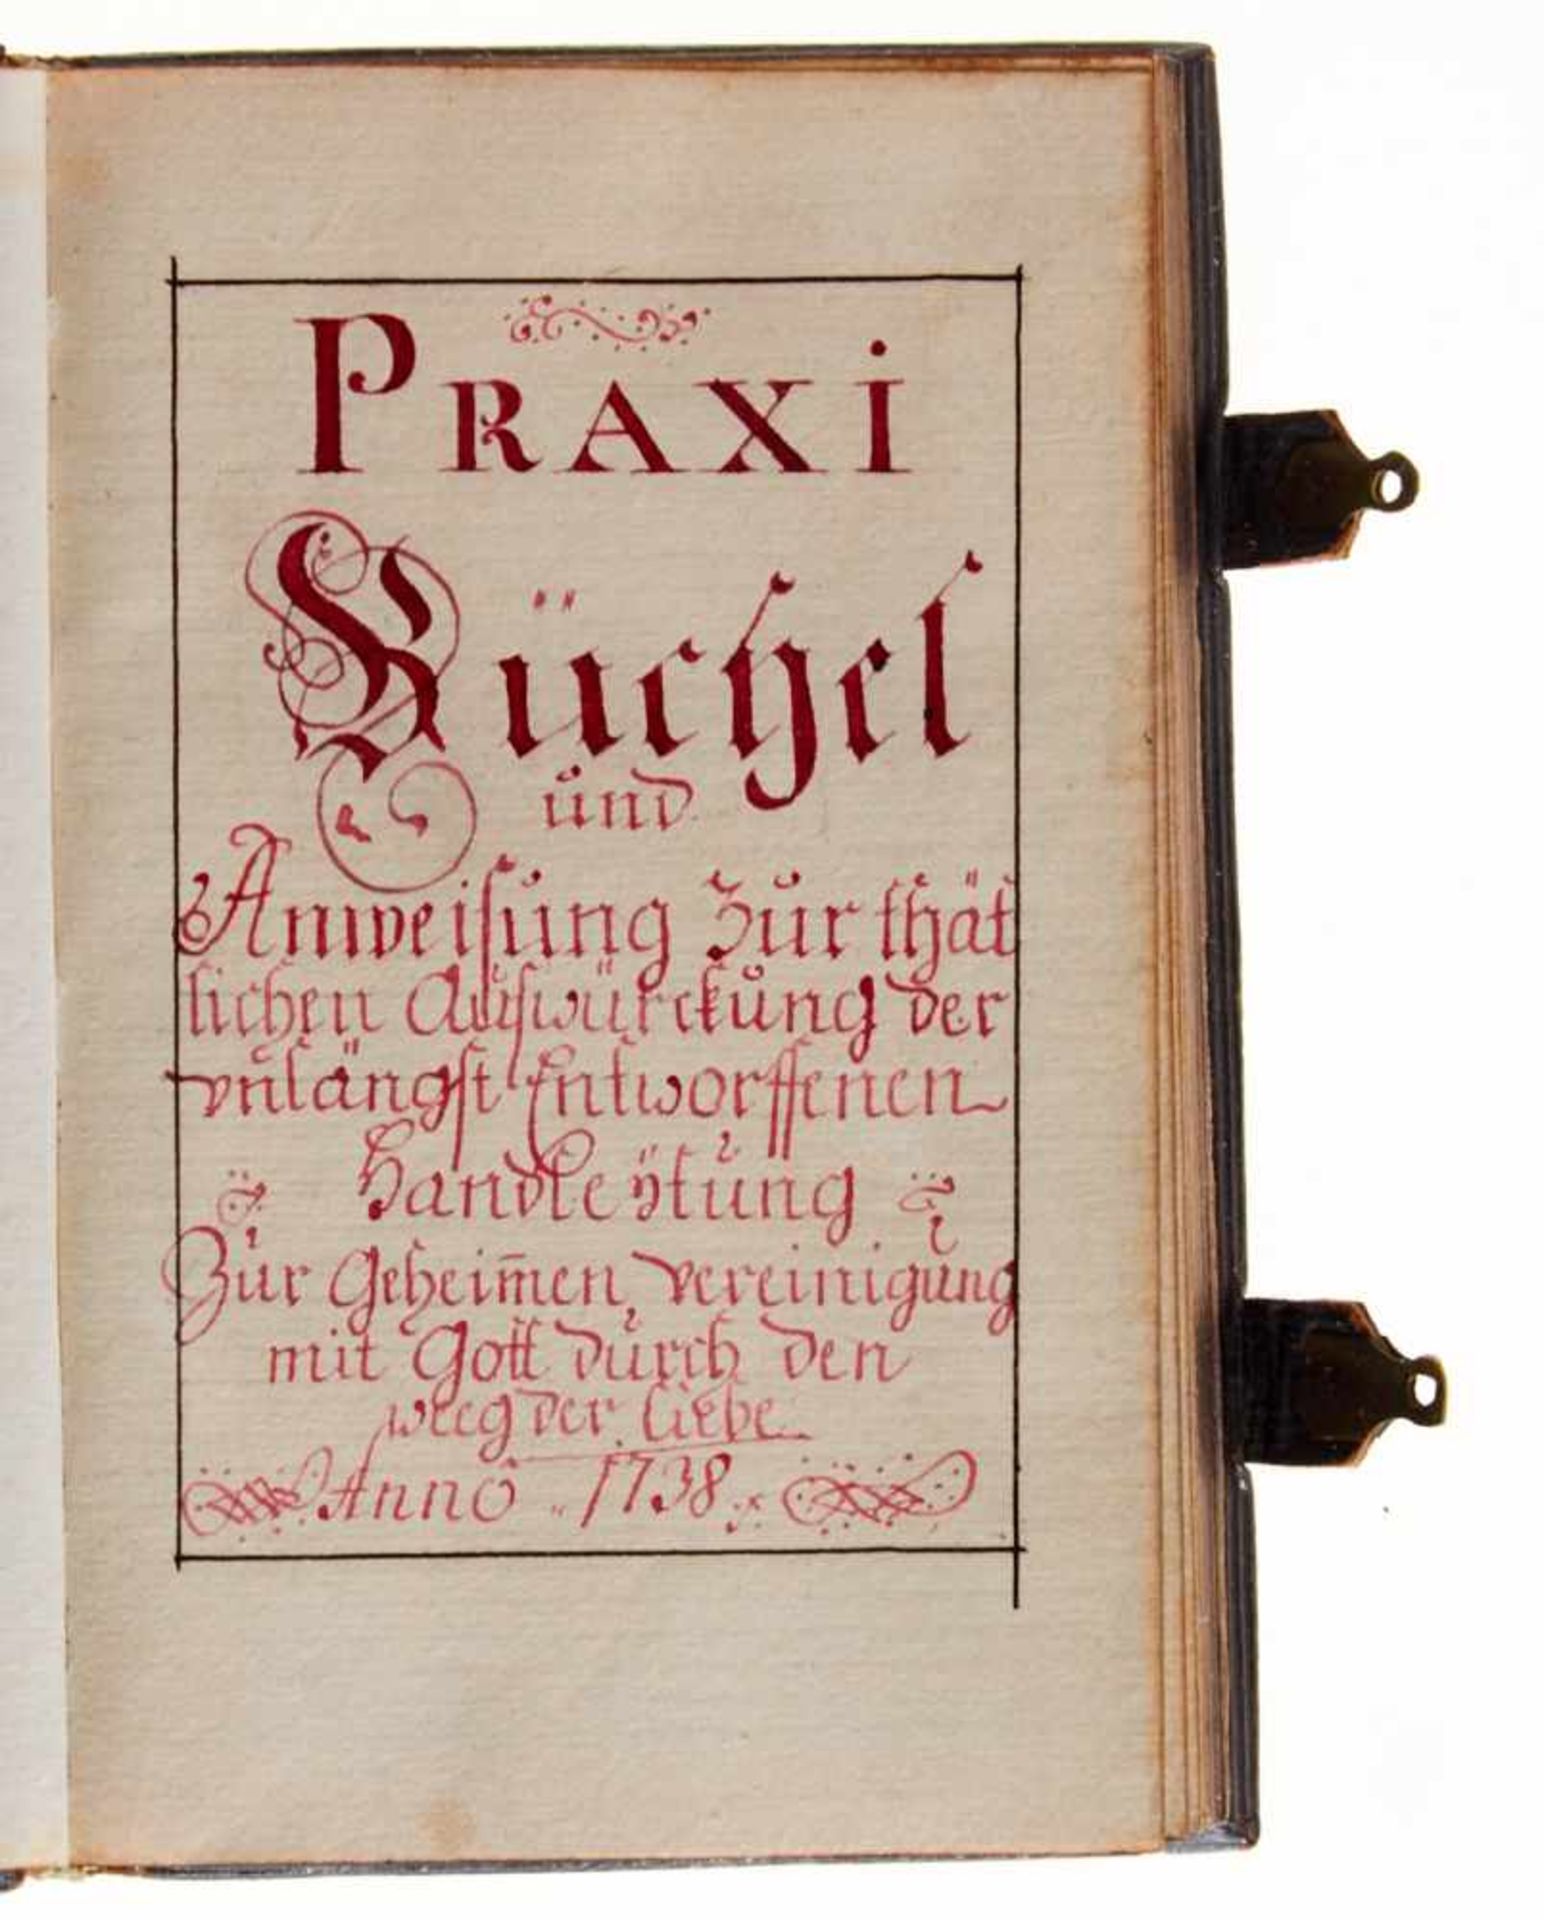 PRAXi
Büchel
und
Anweisung Zur thät
lichen Auswürckung der
vnlängst Entworffenen
Handleÿtung
Zur Geheim̅en vereinigung
mit Gott durch den
weeg der Liebe
Anno 1738